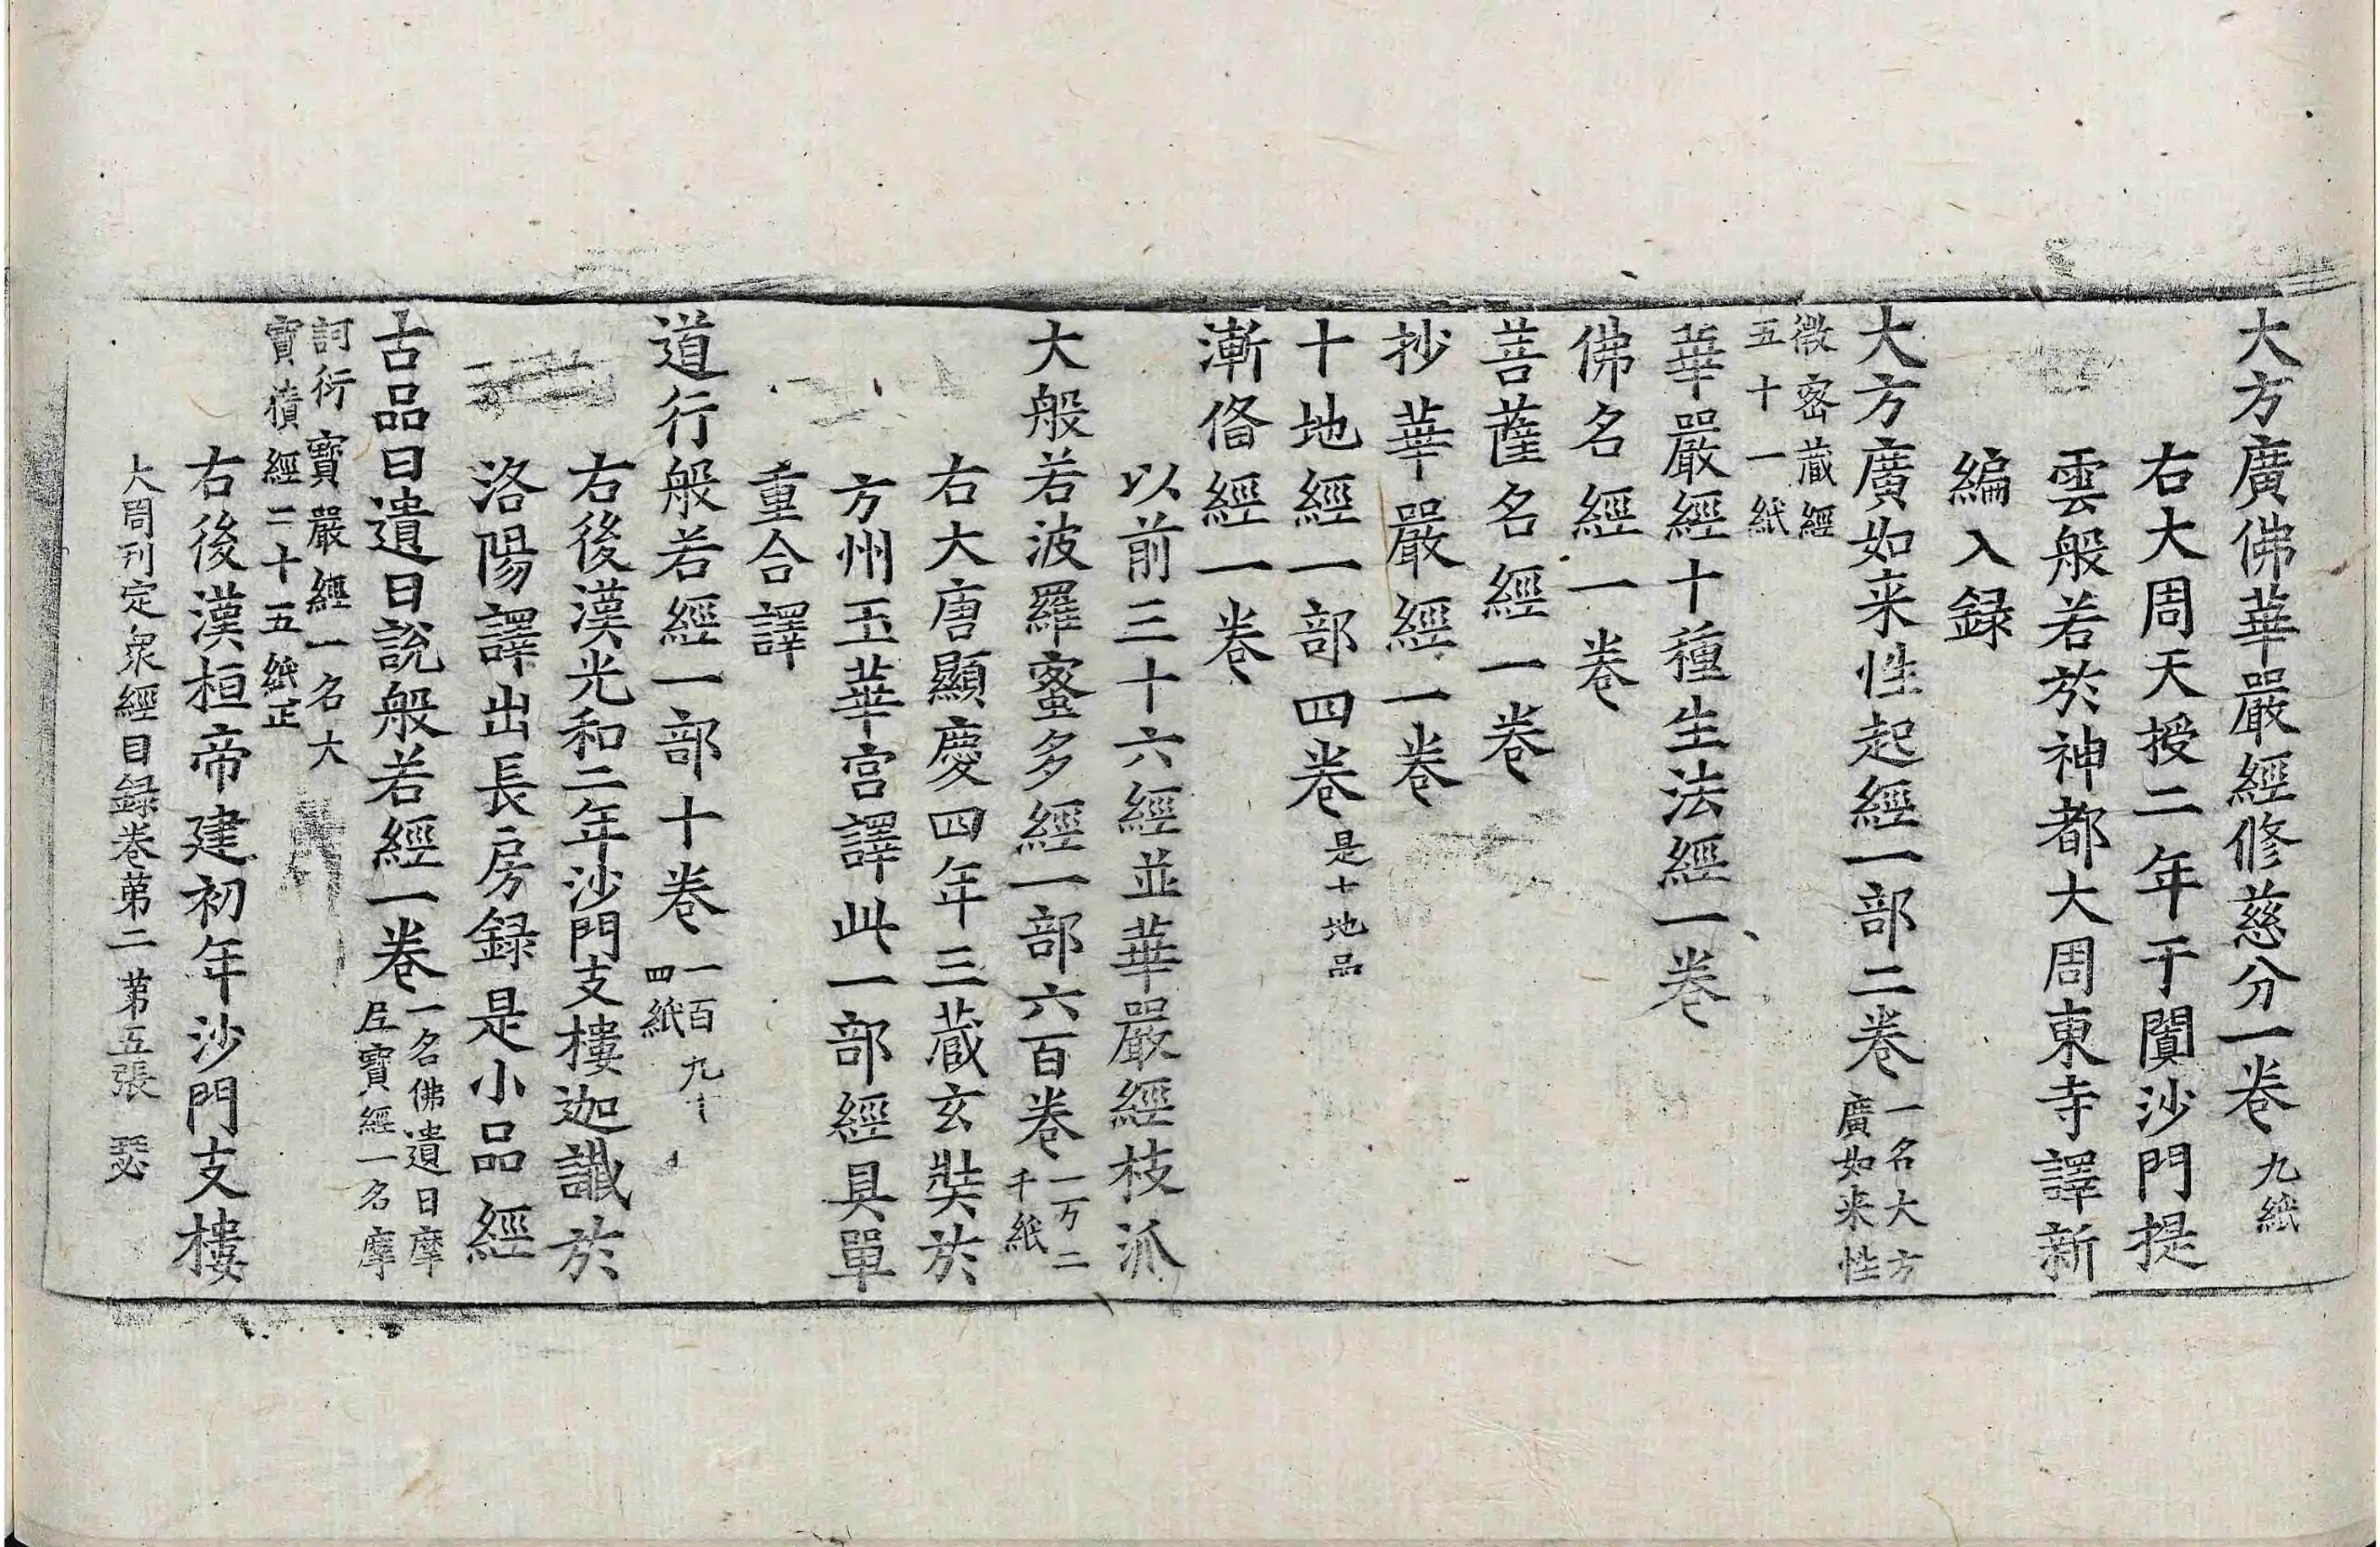 大方廣佛華嚴經修慈分一卷九紙
右大周天授二年于闐沙門提
雲般若於神都大周東寺譯新
編入録
大方廣如来性起經一部二卷一名大方
廣如来性
微密蔵經
五十一紙
華嚴經十種生法經一卷
佛名經一卷
菩薩名經一卷
抄華嚴經一卷
十地經一部四卷是十地品
漸俻經一卷
以前三十六經並華嚴經枝派
大般若波羅蜜多經一部六百卷一万二
千紙
右大唐顯慶四年三蔵玄奘於
方州玉華宮譯此一部經具單
重合譯
道行般若經一部十卷一百九十
四紙
右後漢光和二年沙門支樓迦讖於
洛陽譯出長房録是小品經
古品曰遺日說般若經一卷一名佛遺日摩
尼寶經一名摩
訶衍寶嚴經一名大
寶積經二十五紙正
右後漢桓帝建初年沙門支樓
大周刊定衆經目録卷苐二 苐五張 瑟